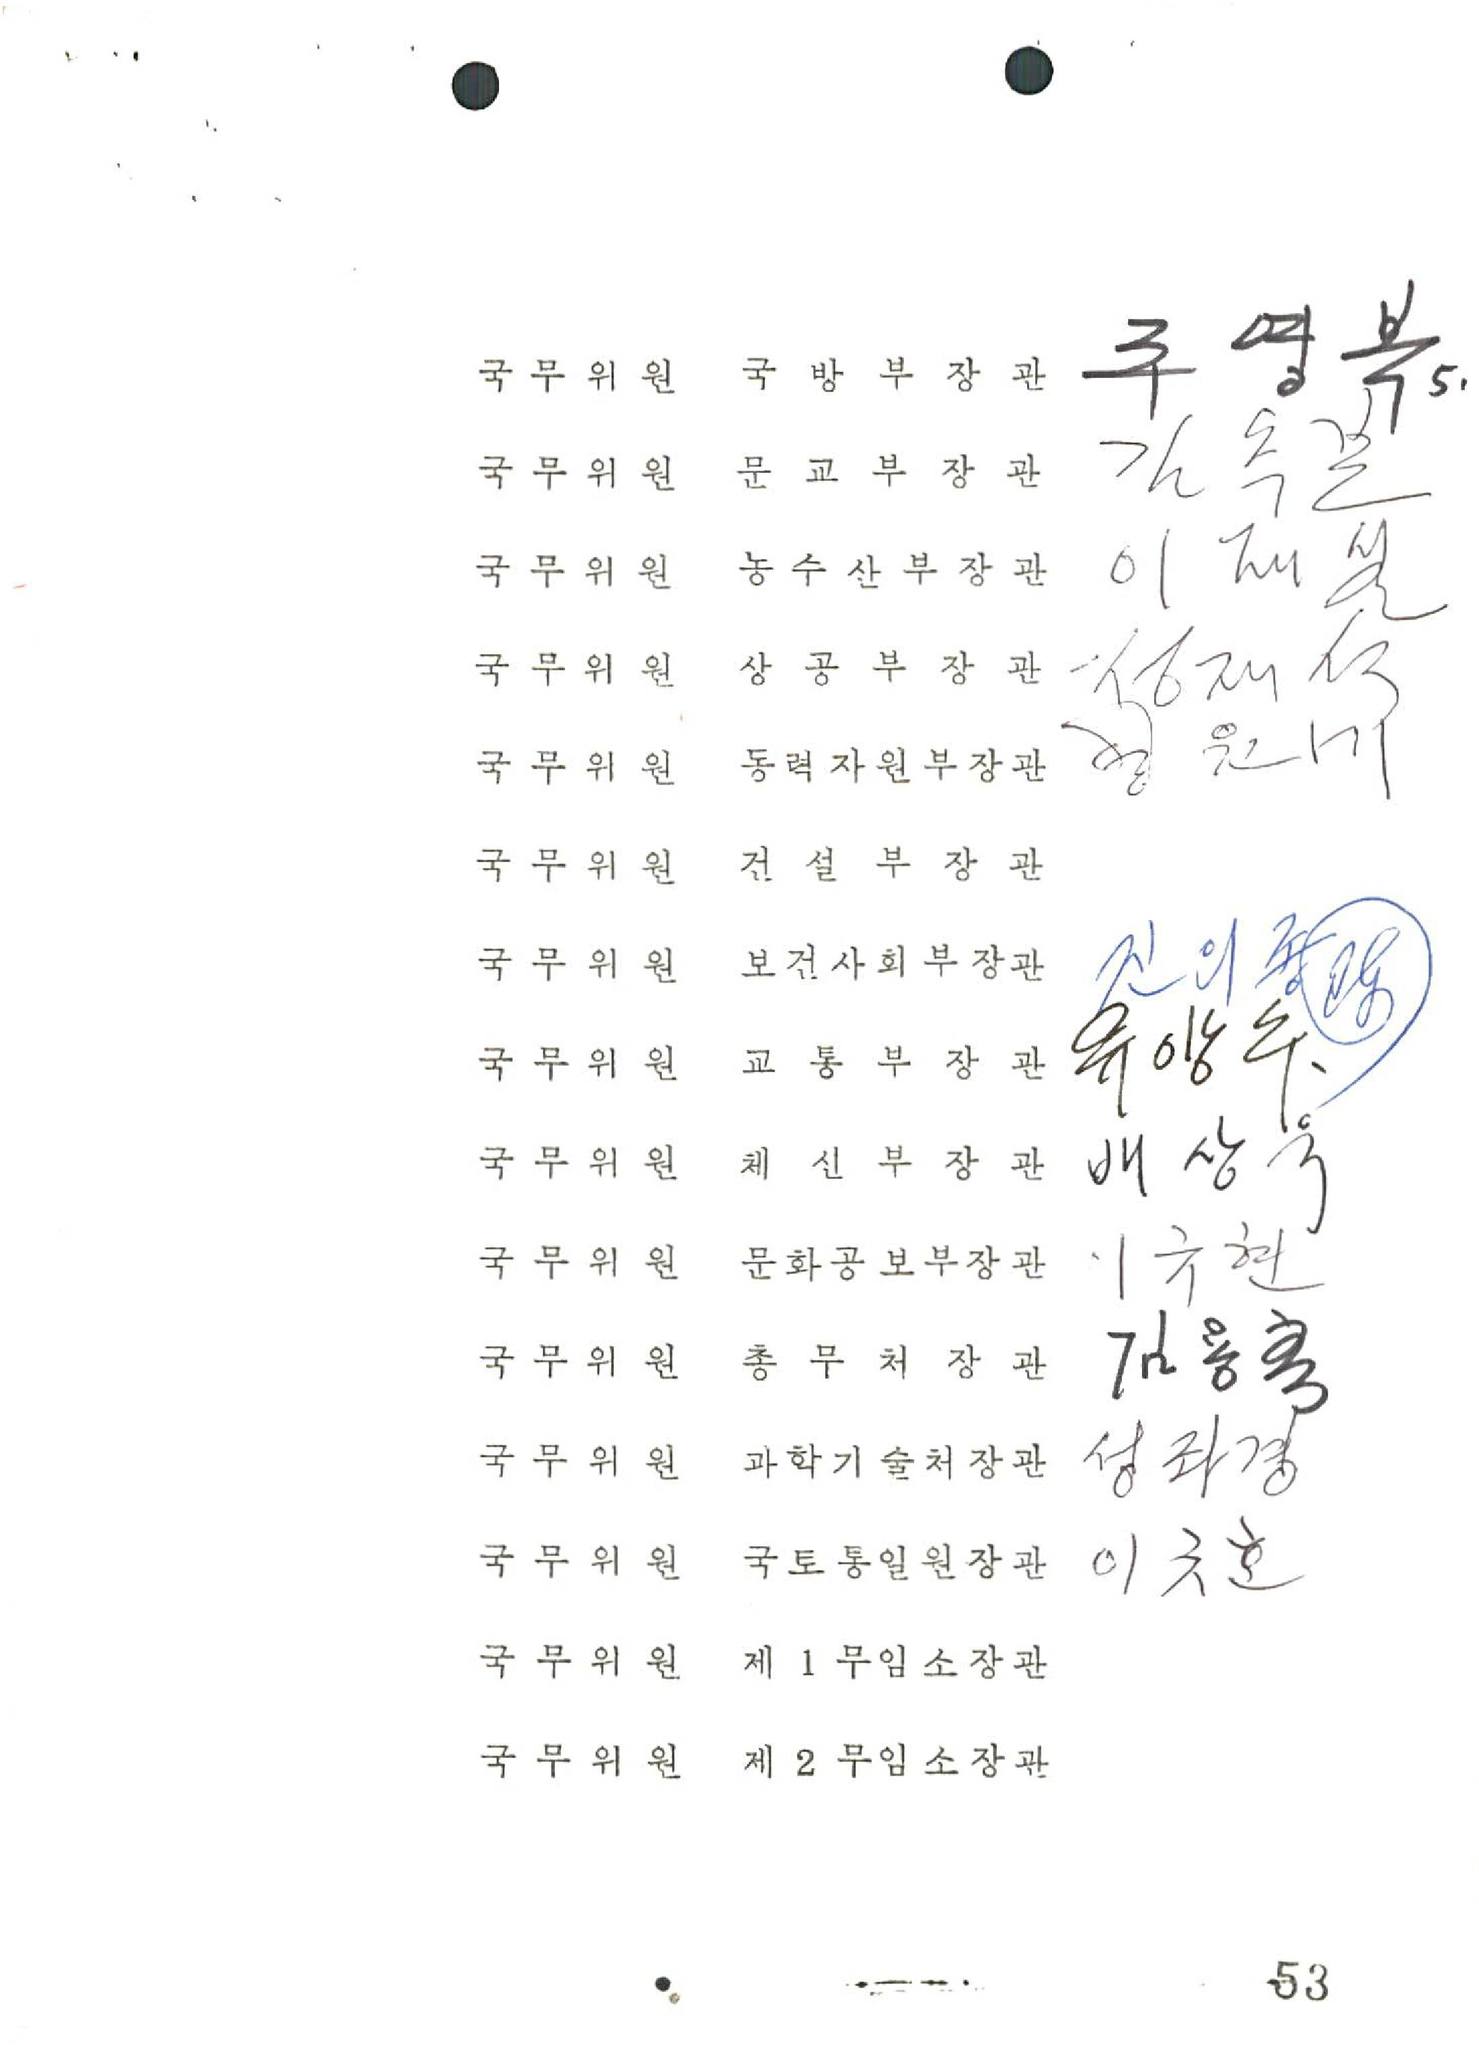 국무위원 국방부장관 주영복 5.
국무위원 문교부장관 김옥길
국무위원 농수산부장관 이재설
국무위원 상공부장관 정재석
국무위원 동력자원부장관
국무위원 건설부장관
국무위원 보건사회부장관 진의종
국무위원 교통부장관 유양수
국무위원 체신부장관
국무위원 문화공보부장관 이규현
국무위원 총무처장관 김용휴
국무위원 과학기술처장관 성좌경
국무위원 국토통일원장관
국무위원 제1무임소장관
국무위원 제2무임소장관
53